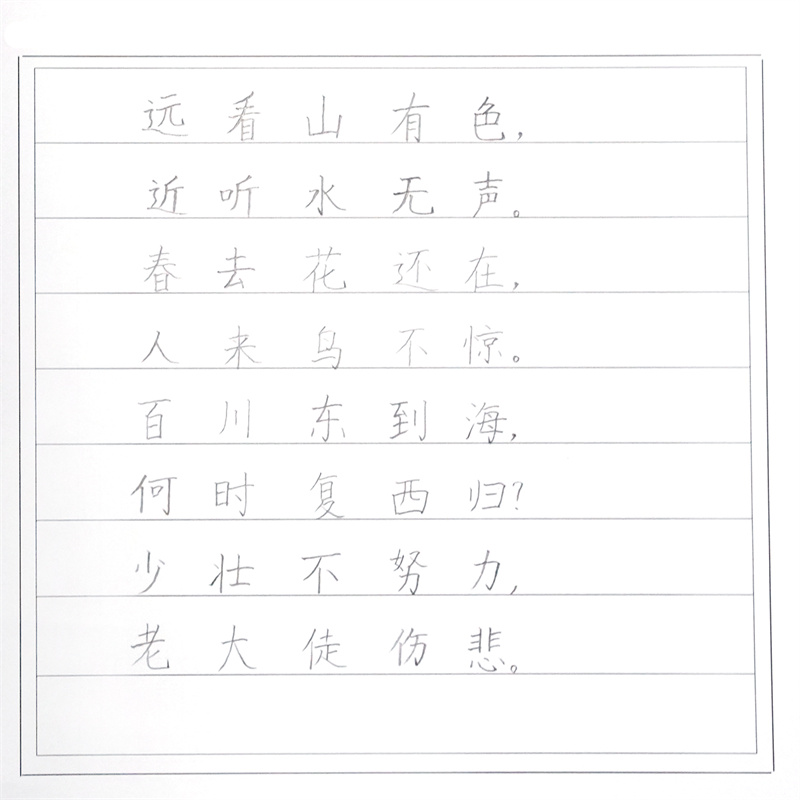 远看山有色,
近听水无声。
春去花还在,
人来鸟不惊。
百川东到海,
何时复西归?
少壮不努力,
老大徒伤悲。